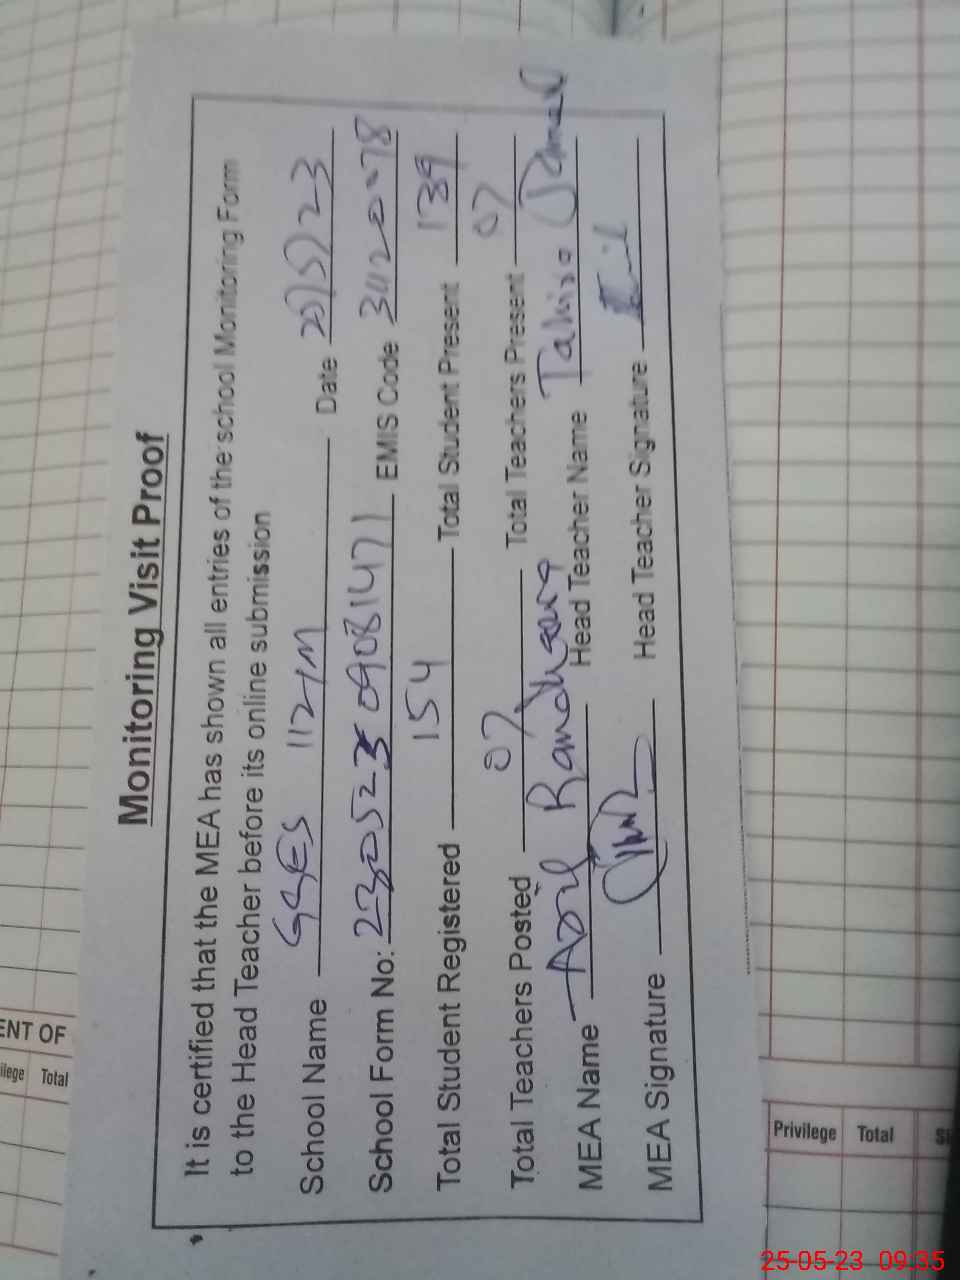 Monitoring Visit Proof
It is certified that the MEA has shown all entries of the school Monitoring Form
to the Head Teacher before its online submission
School Name GGES 112/M Date 25/5/23
School Form No: 230523 09081471 EMIS Code 34120078
Total Student Registered 154 Total Student Present 139
Total Teachers Posted 07 Total Teachers Present 07
MEA Name Adil Randhawa Head Teacher Name Jameel
MEA Signature Head Teacher Signature
ENT OF
ilege Total
Privilege Total
25-05-23 09:35